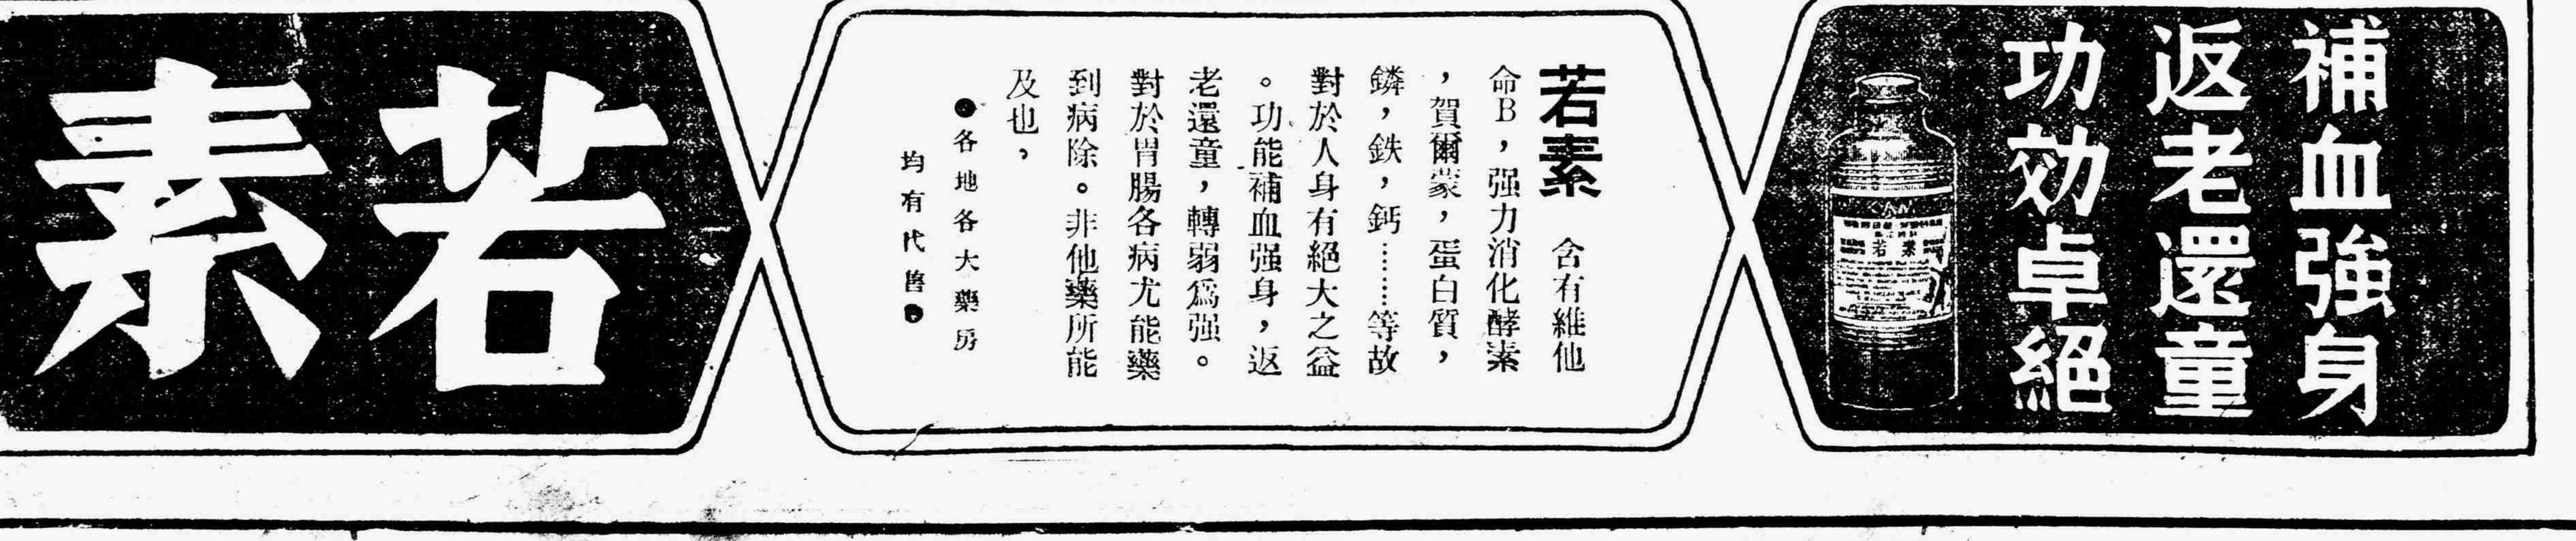 補血強身
返老還童
功効卓絕
若素
若素　含有維他
命B，强力消化酵素
，賀爾蒙，蛋白質，
鏻，鉄，鈣………等故
對於人身有絕大之益
。功能補血强身，返
老還童，轉弱爲强。
對於胃腸各病尤能藥
到病除。非他藥所能
及也，
●各地各大藥房
均有代售●
若素